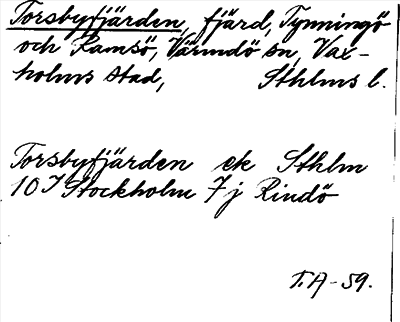 Torsbyfjärden, fjärd, Tynningö
och Ramsö, Värmdö sn, Vax-
holms stad, Sthlms l.
Torsbyfjärden ek Sthlm
10 I Stockholm 7 j Rindö
T.A-59.